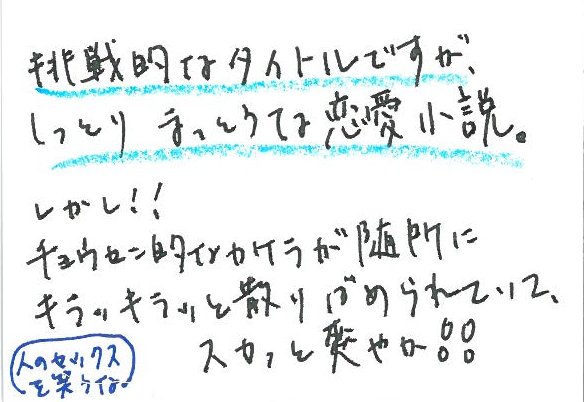 挑戦的なタイトルですが、
しっとり まっとうな恋愛小説。
しかし!!
チョウセン的なカケラが随所に
キラッキラッと散りばめられていて、
スカッと爽やか!!
人のセックス
を笑うな。